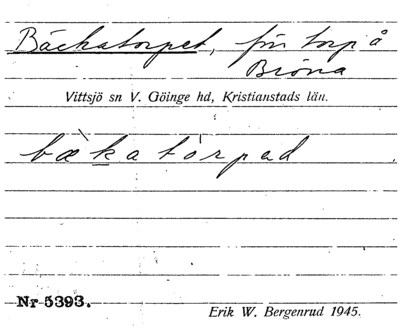 Bäckatorpet, f.n. torp å
Bröna
Vittsjö sn V. Göinge hd, Kristianstads län.
bæ̀katórpad
Nr 5393.
Erik W. Bergenrud 1945.